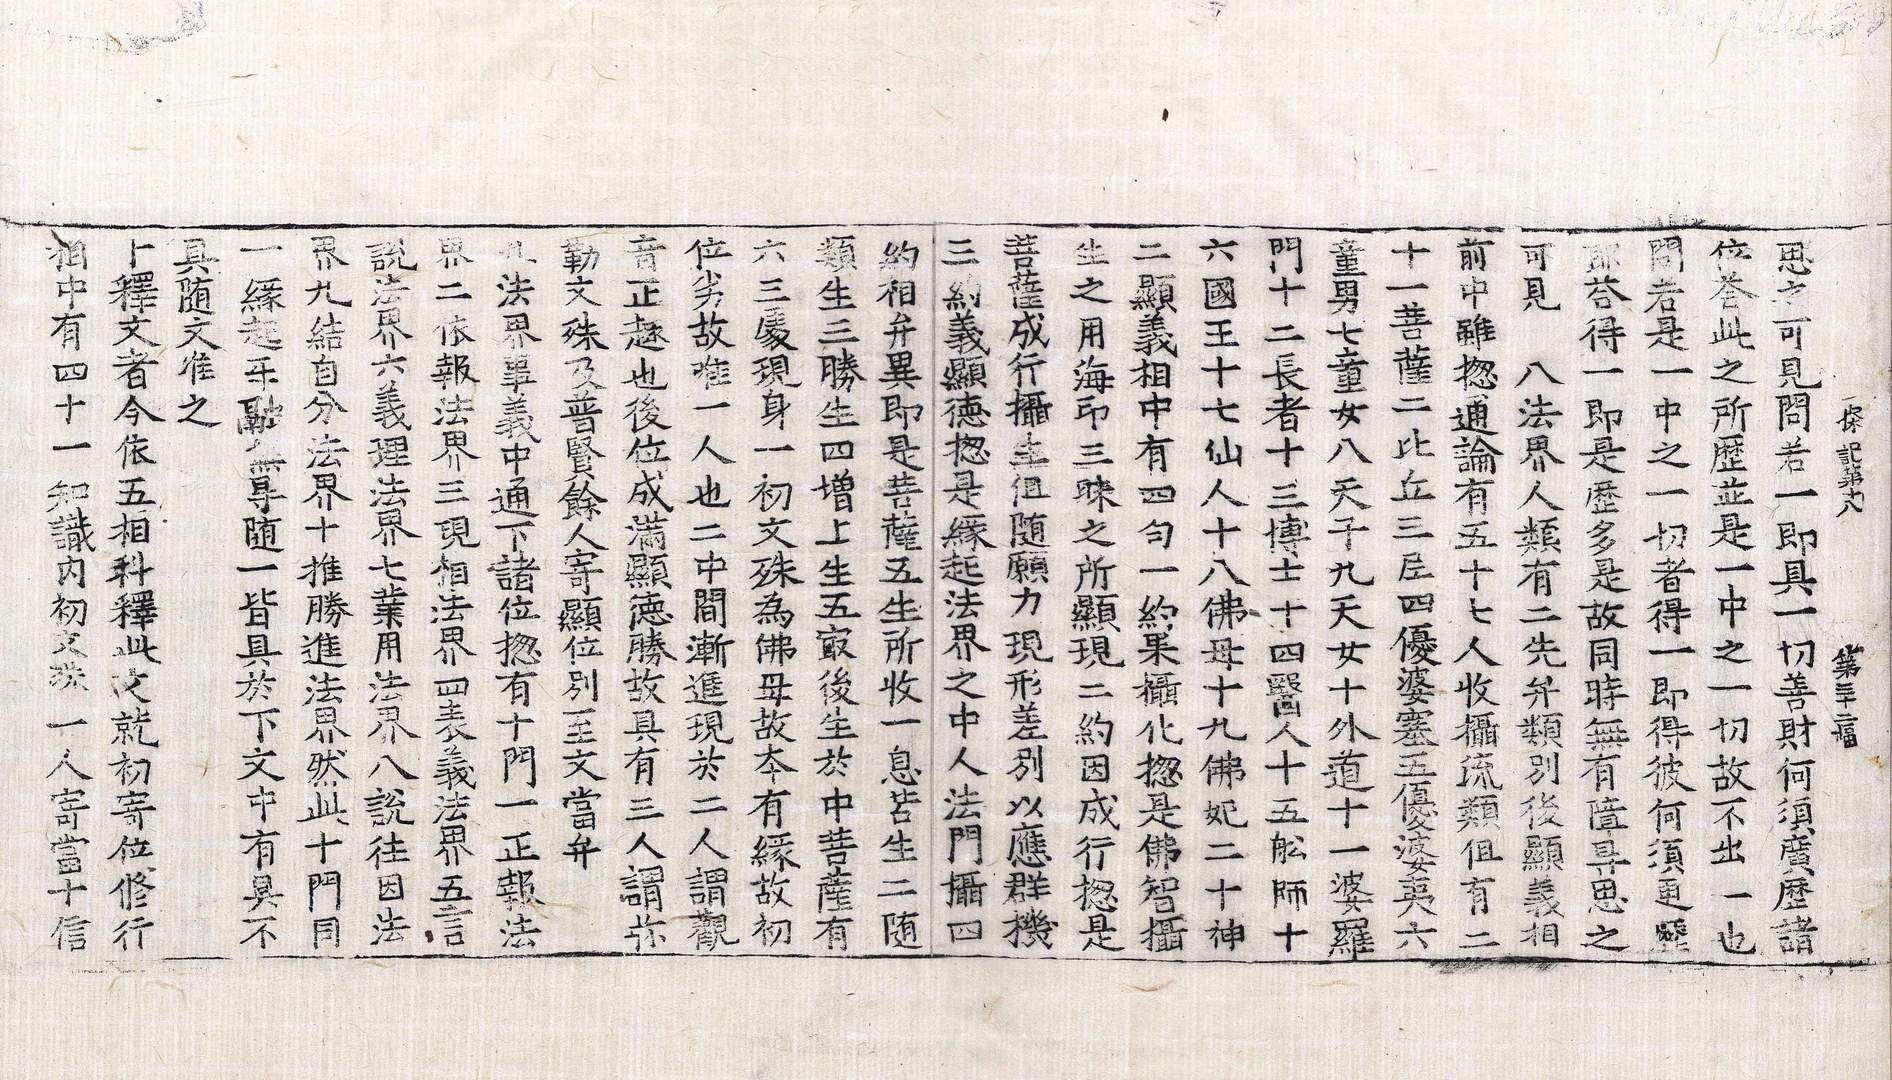 探記第十八　第三十二幅
思之可見問若一即具一切善財何須廣歷諸
位荅此之所歷並是一中之一切故不出一也
問若是一中之一切者得一即得彼何須更歷
耶荅得一即是歷多是故同時無有障㝵思之
可見　八法界人類有二先弁類別後顯義相
前中雖揔通論有五十七人收攝流類但有二
十一菩薩二比丘三尼四優婆塞五優婆夷六
童男七童女八天子九天女十外道十一婆羅
門十二長者十三博士十四醫人十五舩師十
六國王十七仙人十八佛母十九佛妃二十神
二顯義相中有四句一約果攝化揔是佛智攝
生之用海印三昧之所顯現二約因成行揔是
菩薩成行攝生但随願力現形差別以應群機
三約義顯德揔是緣起法界之中人法門攝四
約相弁異即是菩薩五生所收一息苦生二随
類生三勝生四增上生五㝡後生於中菩薩有
六三處現身一初文殊為佛母故夲有緣故初
位劣故唯一人也二中間漸進現於二人謂觀
音正趣也後位成滿顯德勝故具有三人謂弥
勤文殊及普賢餘人寄顯位別至文當弁
九法界事義中通下諸位揔有十門一正報法
界二依報法界三現相法界四表義法界五言
說法界六義理法界七業用法界八說往因法
界九結自分法界十推勝進法界然此十門同
一緣起㸦融無㝵随一皆具於下文中有具不
具随文准之
十釋文者今依五相科釋此文就初寄位修行
相中有四十一知識內初文殊一人寄當十信